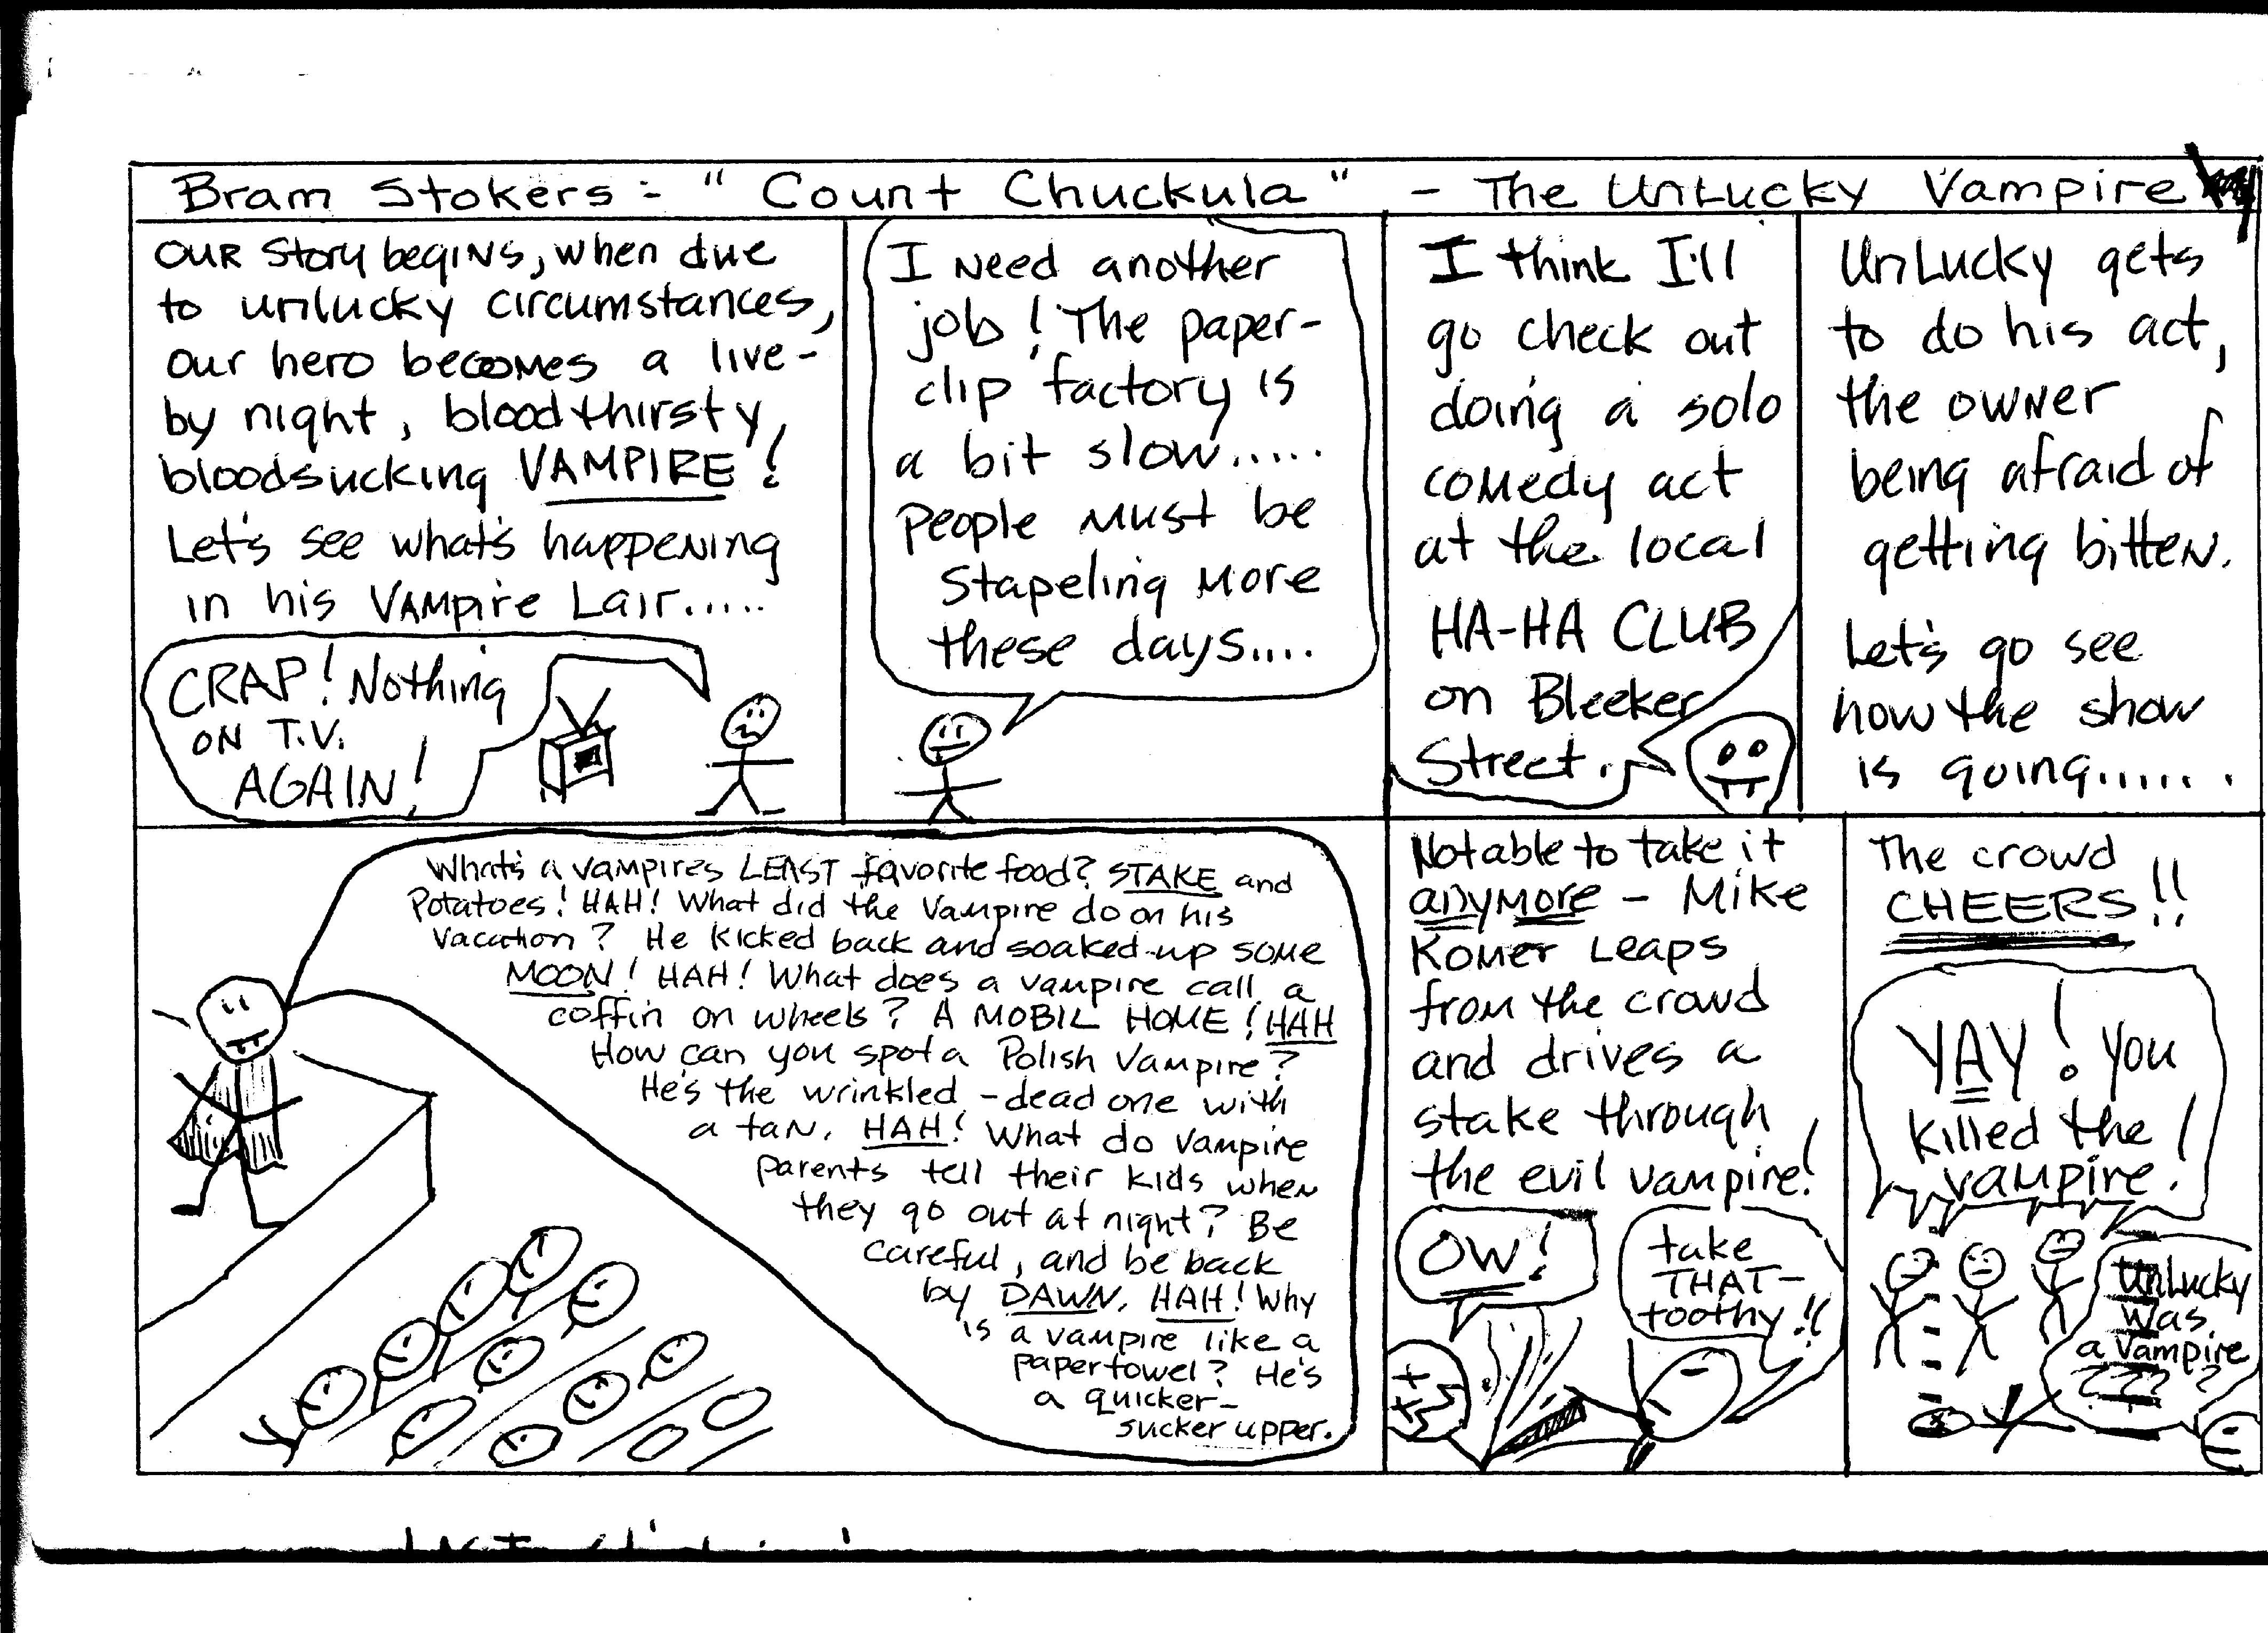 Bram Stokers: "Count Chuckula" - The UnLucky Vampire
OUR Story begins, when due
to unlucky circumstances,
our hero becomes a live-
by night, bloodthirsty,
bloodsucking VAMPIRE!
Let's see what's happening
in his VAMpire Lair.....
CRAP! Nothing
ON T.V.
AGAIN!
I Need another
job! The paper-
clip factory is
a bit slow.....
People must be
Stapeling more
these days....
I think I'll
go check out
doing a solo
comedy act
at the local
HA-HA CLUB
on Bleeker
Street.
UnLucky gets
to do his act,
the owner
being afraid of
getting bitten.
Let's go see
how the show
is going......
What's a vampires LEAST favorite food? STAKE and
Potatoes! HAH! What did the Vampire do on his
Vacation? He kicked back and soaked-up some
MOON! HAH! What does a vampire call a
coffin on wheels? A MOBIL HOME! HAH
How can you spot a Polish Vampire?
He's the wrinkled-dead one with
a tan. HAH! What do Vampire
parents tell their kids when
they go out at night? Be
careful, and be back
by DAWN. HAH! Why
is a vampire like a
papertowel? He's
a quicker-
sucker upper.
Not able to take it
anymore - Mike
Komer Leaps
from the crowd
and drives a
stake through
the evil vampire!
OW!
take
THAT-
toothy!!
The crowd
CHEERS!!
YAY! You
killed the
vampire!
UnLucky
was
a vampire
????